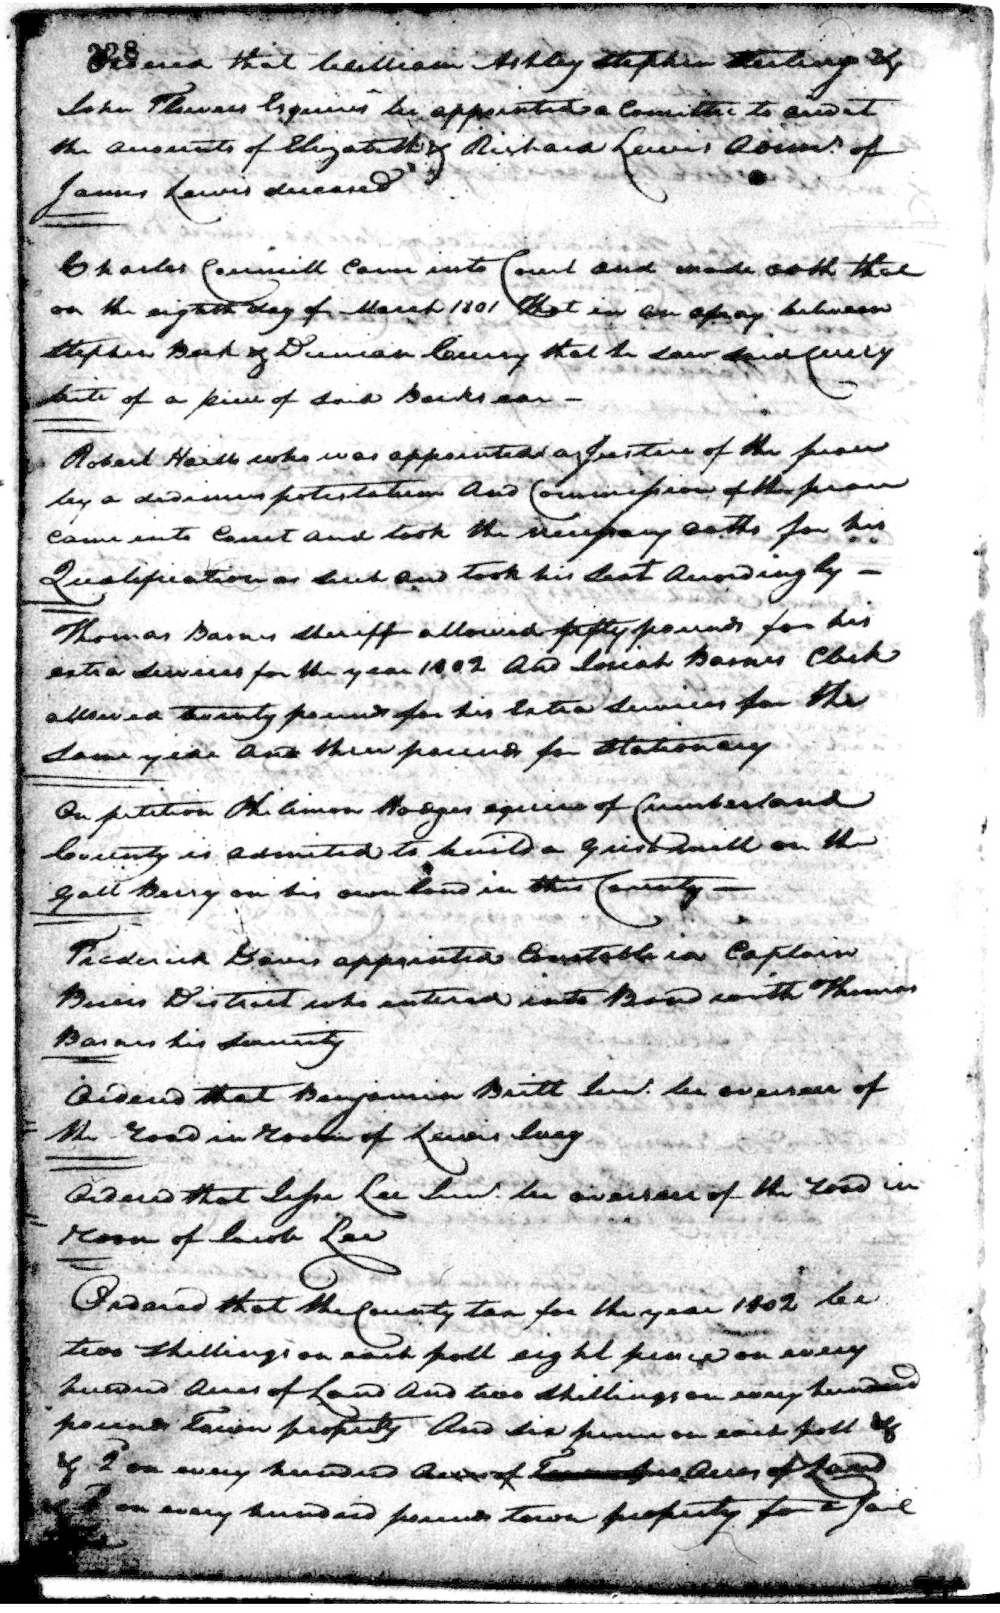 228
Ordered that William Ashley Stephen Sterling &
John Flowers Esquires be appointed a Comittee to audit
the accounts of Elizabeth & Richard Lewis Admrs. of
James Lewis deceased
Charles Council Came into Court and made oath that
on the eighth day of March 1801 that in an afray between
Stephen Back & Duncan Curry that he saw said Curry
bite of a piece of said Backs ear —
Robert Hails who was appointed a Justice of the peace
by a dedimus potestatum And Commission of the peace
came into Court and took the necessary oaths for his
Qualification as such and took his Seat Accordingly —
Thomas Barnes Sheriff allowed fifty pounds for his
extra services for the year 1802 And Josiah Barnes Clerk
allowed twenty pounds for his Extra Services for the
Same year and three pounds for Stationary
On petition Philimon Hodges equire of Cumberland
County is admited to build a Grist mill on the
Gall Berry on his own land in this County —
Frederick Davis appointed Constable in Captain
District who entered into Bond with Thomas
Barnes his Security
Ordered that Benjamin Britt Junr. be overseer of
the Road in Room of Lewis Ivey
Ordered that Jesse Lee Junr. be overseer of the road in
Room of Jacob Lee
Ordered that the County tax for the year 1802 be
two shillings on each poll eight pence on every
hundred acres of Land And two shillings on every hundred
pounds Town property And six pence on each poll &
& 2 on every hundred Acres of Land
on every hundred pounds town property for a Jail